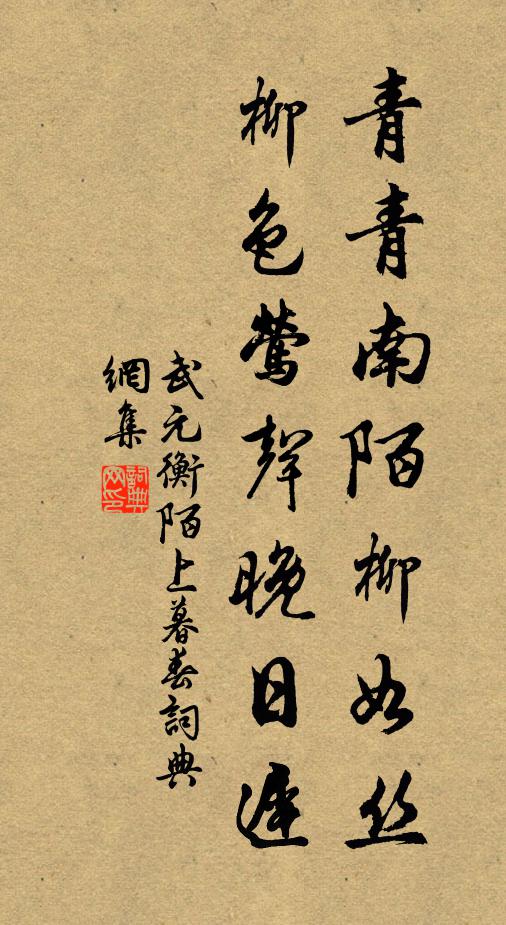 青青南陌柳如丝
柳色莺聲晚日遲
武元衡陌上暮春詞典
網集
詞典
网印